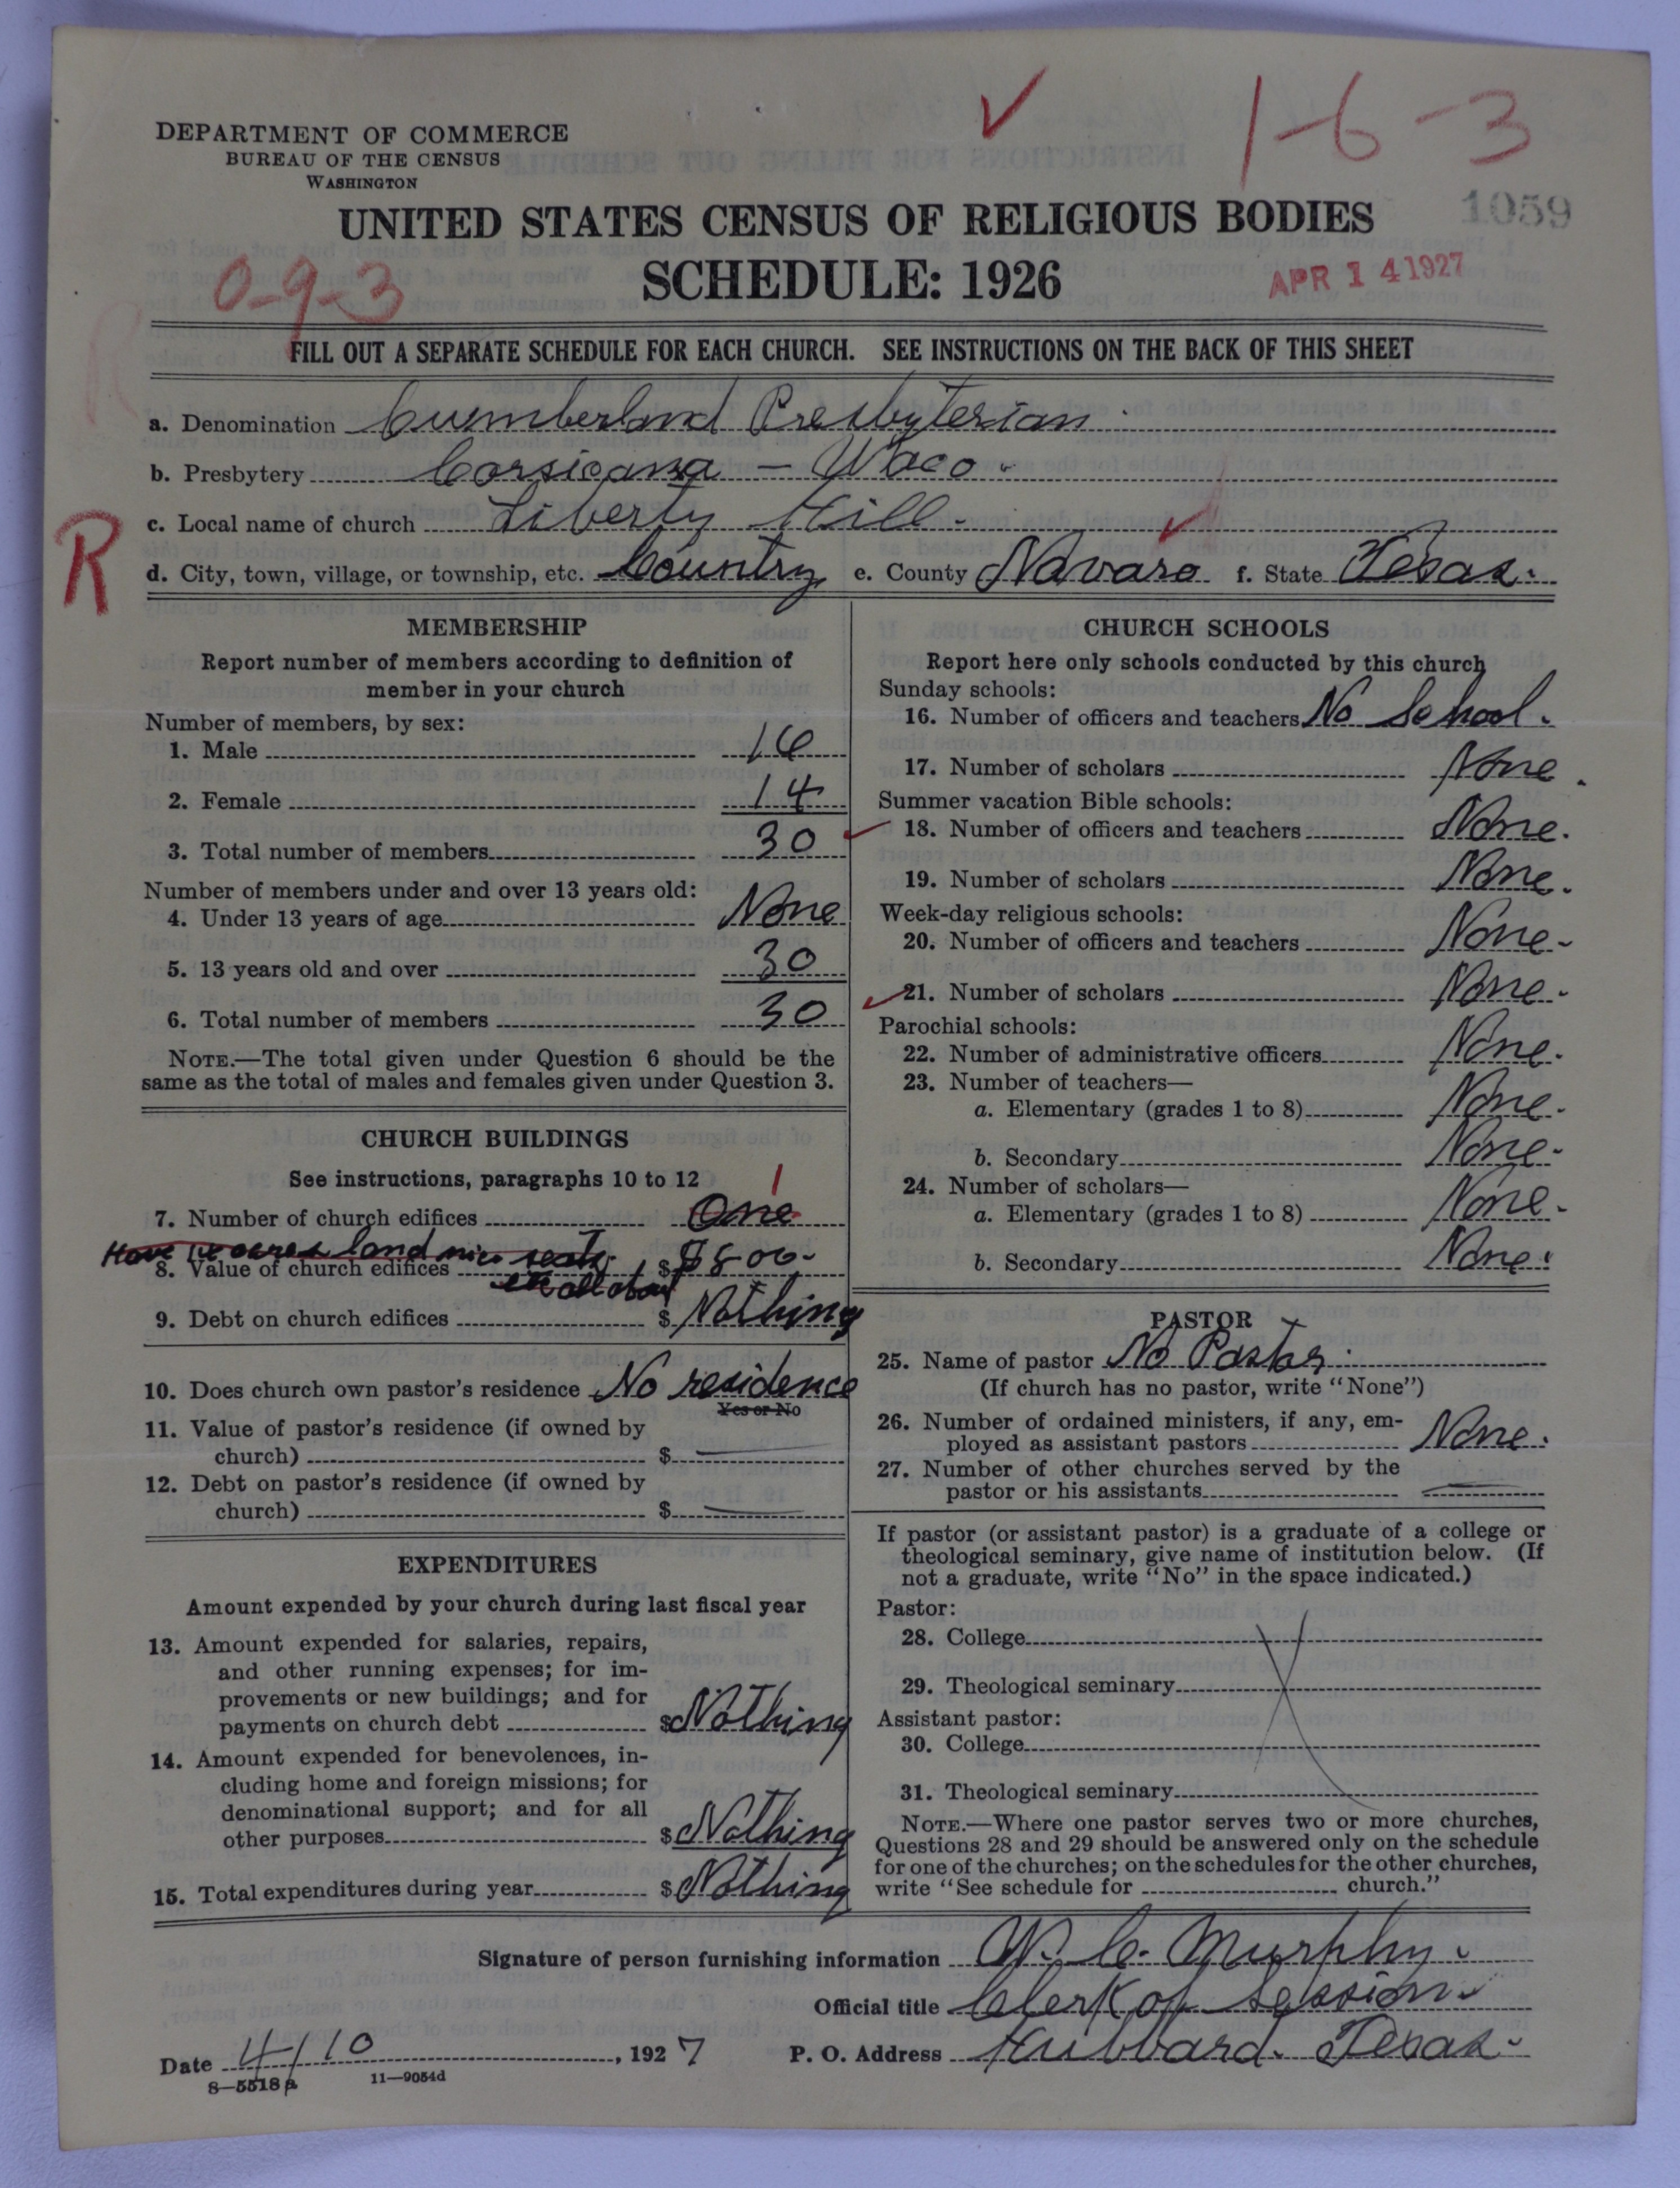 DEPARTMENT OF COMMERCE
BUREAU OF THE CENSUS
WASHINGTON
1-6-3
1059
UNITED STATES CENSUS OF RELIGIOUS BODIES
SCHEDULE: 1926
0-9-3
APR 14 1927
FILL OUT A SEPARATE SCHEDULE FOR EACH CHURCH. SEE INSTRUCTIONS ON THE BACK OF THIS SHEET
R
a. Denomination Cumberland Presbyterian.
b. Presbytery Corsicana - Waco.
c. Local name of church Liberty Hill.
R
d. City, town, village, or township, etc. Country e. County Navaro f. State Texas.
MEMBERSHIP
Report number of members according to definition of
member in your church
Number of members, by sex:
1. Male 16
2. Female 14
3. Total number of members 30
Number of members under and over 13 years old:
4. Under 13 years of age None
5. 13 years old and over 30
6. Total number of members 30
NOTE.—The total given under Question 6 should be the
same as the total of males and females given under Question 3.
CHURCH BUILDINGS
See instructions, paragraphs 10 to 12
1
7. Number of church edifices One
Have acres land nice seats
8. Value of church edifices $ $800-
all about
9. Debt on church edifices $ Nothing
10. Does church own pastor's residence No residence
Yes or No
11. Value of pastor's residence (if owned by
church) $
12. Debt on pastor's residence (if owned by
church) $
EXPENDITURES
Amount expended by your church during last fiscal year
13. Amount expended for salaries, repairs,
and other running expenses; for im-
provements or new buildings; and for
payments on church debt $ Nothing
14. Amount expended for benevolences, in-
cluding home and foreign missions; for
denominational support; and for all
other purposes $ Nothing
15. Total expenditures during year $ Nothing
CHURCH SCHOOLS
Report here only schools conducted by this church
Sunday schools:
16. Number of officers and teachers No School.
17. Number of scholars None.
Summer vacation Bible schools:
18. Number of officers and teachers None.
19. Number of scholars None.
Week-day religious schools:
20. Number of officers and teachers None-
21. Number of scholars None-
Parochial schools:
22. Number of administrative officers None.
23. Number of teachers—
a. Elementary (grades 1 to 8) None-
b. Secondary None-
24. Number of scholars—
a. Elementary (grades 1 to 8) None-
b. Secondary None.
PASTOR
25. Name of pastor No Pastor.
(If church has no pastor, write "None")
26. Number of ordained ministers, if any, em-
ployed as assistant pastors None.
27. Number of other churches served by the
pastor or his assistants
If pastor (or assistant pastor) is a graduate of a college or
theological seminary, give name of institution below. (If
not a graduate, write "No" in the space indicated.)
Pastor:
28. College
29. Theological seminary
Assistant pastor:
30. College
31. Theological seminary
NOTE.—Where one pastor serves two or more churches,
Questions 28 and 29 should be answered only on the schedule
for one of the churches; on the schedules for the other churches,
write "See schedule for church."
Signature of person furnishing information W. C. Murphy.
Official title Clerk of Session.
Date 4/10, 1927 P. O. Address Hubbard. Texas.
8—5518 a 11—9054d